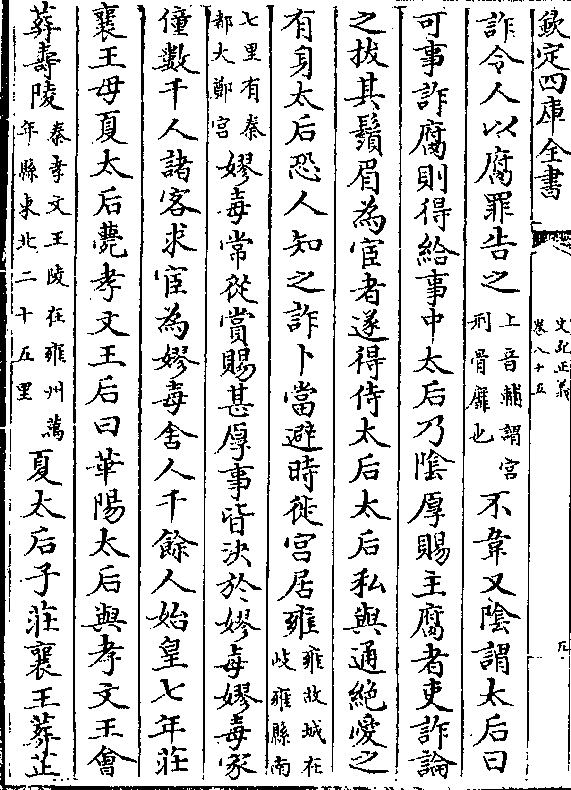 欽定四庫全書
史記正義
卷八十五
九
詐令人以腐罪告之上音輔謂宮刑胥靡也不韋又陰謂太后曰
可事詐腐則得給事中太后乃陰厚賜主腐者吏詐論
之拔其鬚眉為宦者遂得侍太后太后私與通絕愛之
有身太后恐人知之詐卜當避時徙宮居雍雍故城在岐雍縣南
七里有秦都大鄭宮嫪毐常從賞賜甚厚事皆決於嫪毐嫪毐家
僮數千人諸客求宦為嫪毐舍人千餘人始皇七年莊
襄王母夏太后薨孝文王后曰華陽太后與孝文王會
葬壽陵秦孝文王陵在雍州萬年縣東北二十五里夏太后子莊襄王葬芷